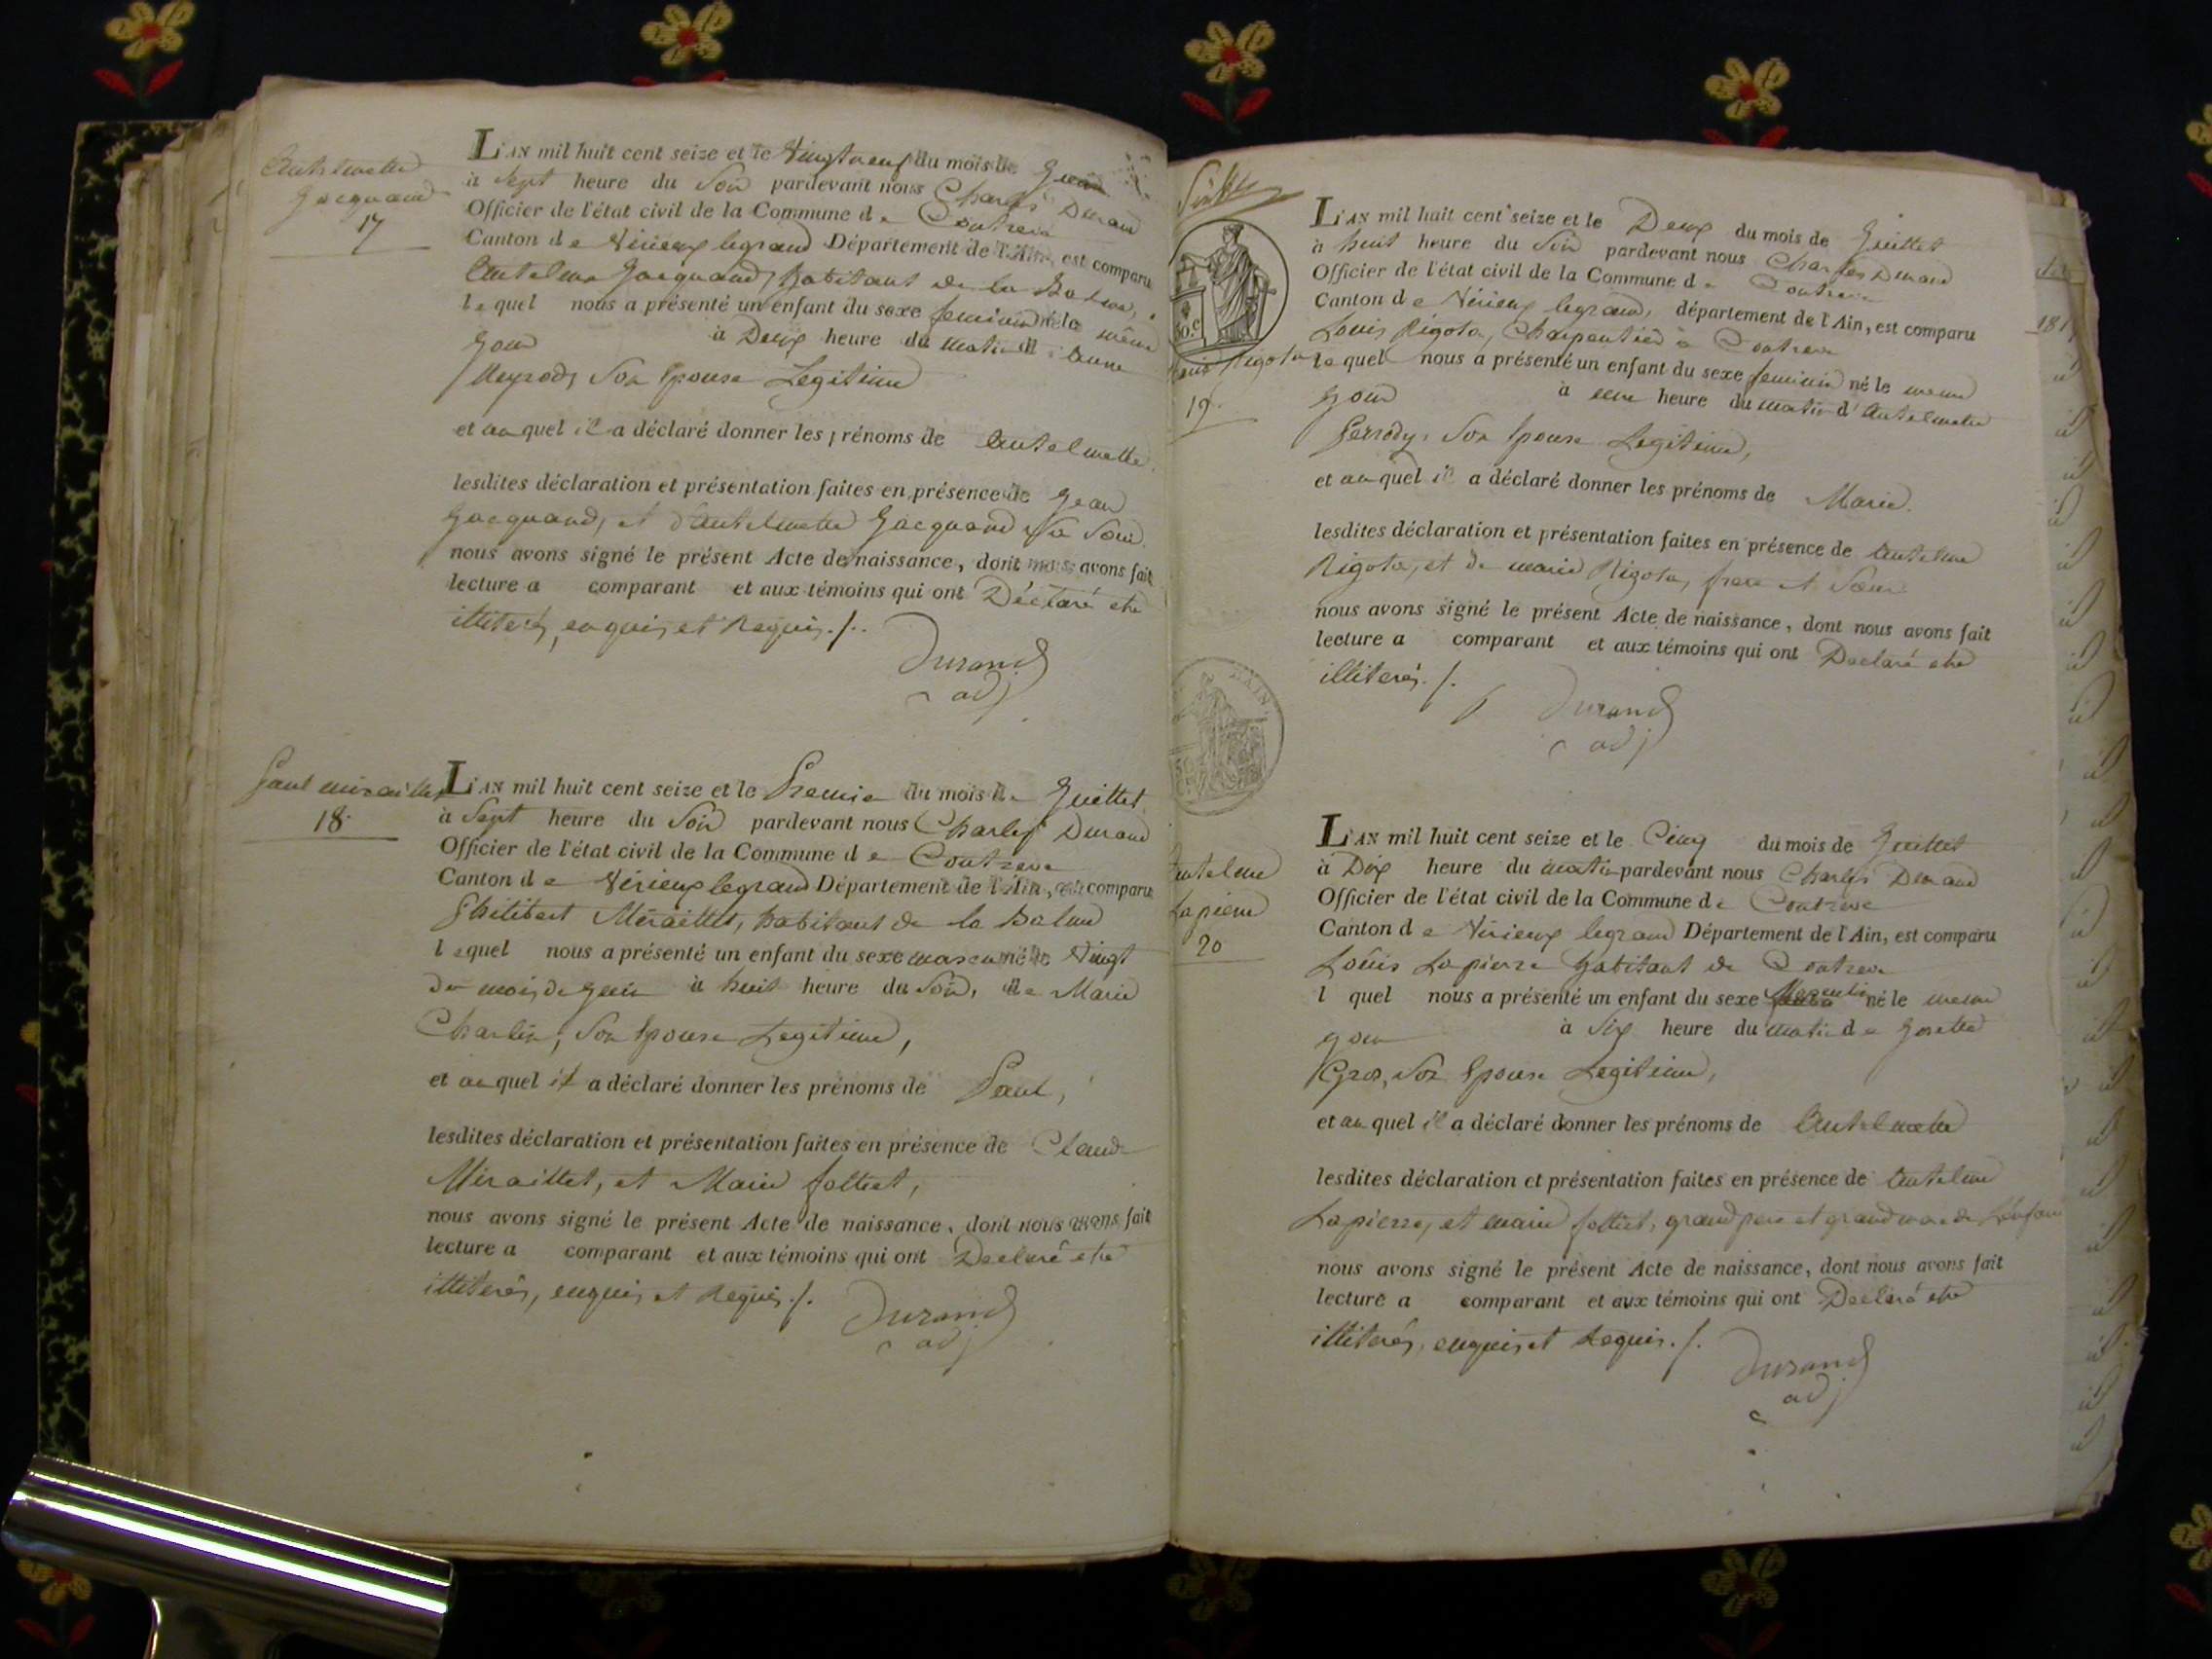 Antelmette
Jacquand
17
L'AN mil huit cent seize et le Vingtneuf du mois de Juin
à Sept heure du Soir pardevant nous Charles Durand
Officier de l'état civil de la Commune de Contrevoz
Canton de Virieux legrand Département de l'Ain, est comparu
Antelme Jacquand, habitant de la Balme,
lequel nous a présenté un enfant du sexe feminin né le même
Jour à Deux heure du matin d'Anne
Meyrod, Son Epouse Legitime
et auquel il a déclaré donner les prénoms de Antelmette.
lesdites déclaration et présentation faites en présence de Jean
Jacquand, et d'Antelmette Jacquand Sa Soeur.
nous avons signé le présent Acte de naissance, dont nous avons fait
lecture a comparant et aux témoins qui ont Déclaré etre
illiterés, enquis et Requis ./.
Durand
adj
Paul miraillet
18
L'AN mil huit cent seize et le Premier du mois de Juillet
à Sept heure du Soir pardevant nous Charles Durand
Officier de l'état civil de la Commune de
Canton de Virieux legrand Département de l'Ain, est comparu
Philibert Miraillet, habitant de la Balme
lequel nous a présenté un enfant du sexe masculin né le Vingt
du mois de Juin à huit heure du Soir, de Marie
Charlin, Son Epouse Legitime,
et auquel il a déclaré donner les prénoms de Paul,
lesdites déclaration et présentation faites en présence de Claude
Miraillet, et Marie folliet,
nous avons signé le présent Acte de naissance, dont nous avons fait
lecture a comparant et aux témoins qui ont Declaré etre
illiterés, enquis et Requis ./.
Durand
adj
Rigotor
19.
L'AN mil huit cent seize et le Deux du mois de Juillet
à huit heure du Soir pardevant nous Charles Durand
Officier de l'état civil de la Commune de
Canton de Virieux legrand, département de l'Ain, est comparu
Louis Rigota, Charpentier à
lequel nous a présenté un enfant du sexe feminin né le meme
Jour à une heure du matin d'Antelmette
Perrody, Son Epouse Legitime,
et auquel il a déclaré donner les prénoms de Marie.
lesdites déclaration et présentation faites en présence de Antelme
Rigota, et de marie Rigota, frere et Soeur
nous avons signé le présent Acte de naissance, dont nous avons fait
lecture a comparant et aux témoins qui ont Declaré etre
illiterés ./.
Durand
adj
antelme
Lapierre
20
L'AN mil huit cent seize et le Cinq du mois de Juillet
à Dix heure du matin pardevant nous Charles Durand
Officier de l'état civil de la Commune de
Canton de Virieux legrand Département de l'Ain, est comparu
Louis Lapierre habitant de
l quel nous a présenté un enfant du sexe Masculin né le meme
jour à Six heure du matin de Josette
Gros, Son Epouse Legitime,
et auquel il a déclaré donner les prénoms de
lesdites déclaration et présentation faites en présence de Antelme
Lapierre, et marie folliet, grand pere et grand mere de L'enfant
nous avons signé le présent Acte de naissance, dont nous avons fait
lecture a comparant et aux témoins qui ont Declaré etre
illiterés, enquis et Requis ./.
Durand
adj